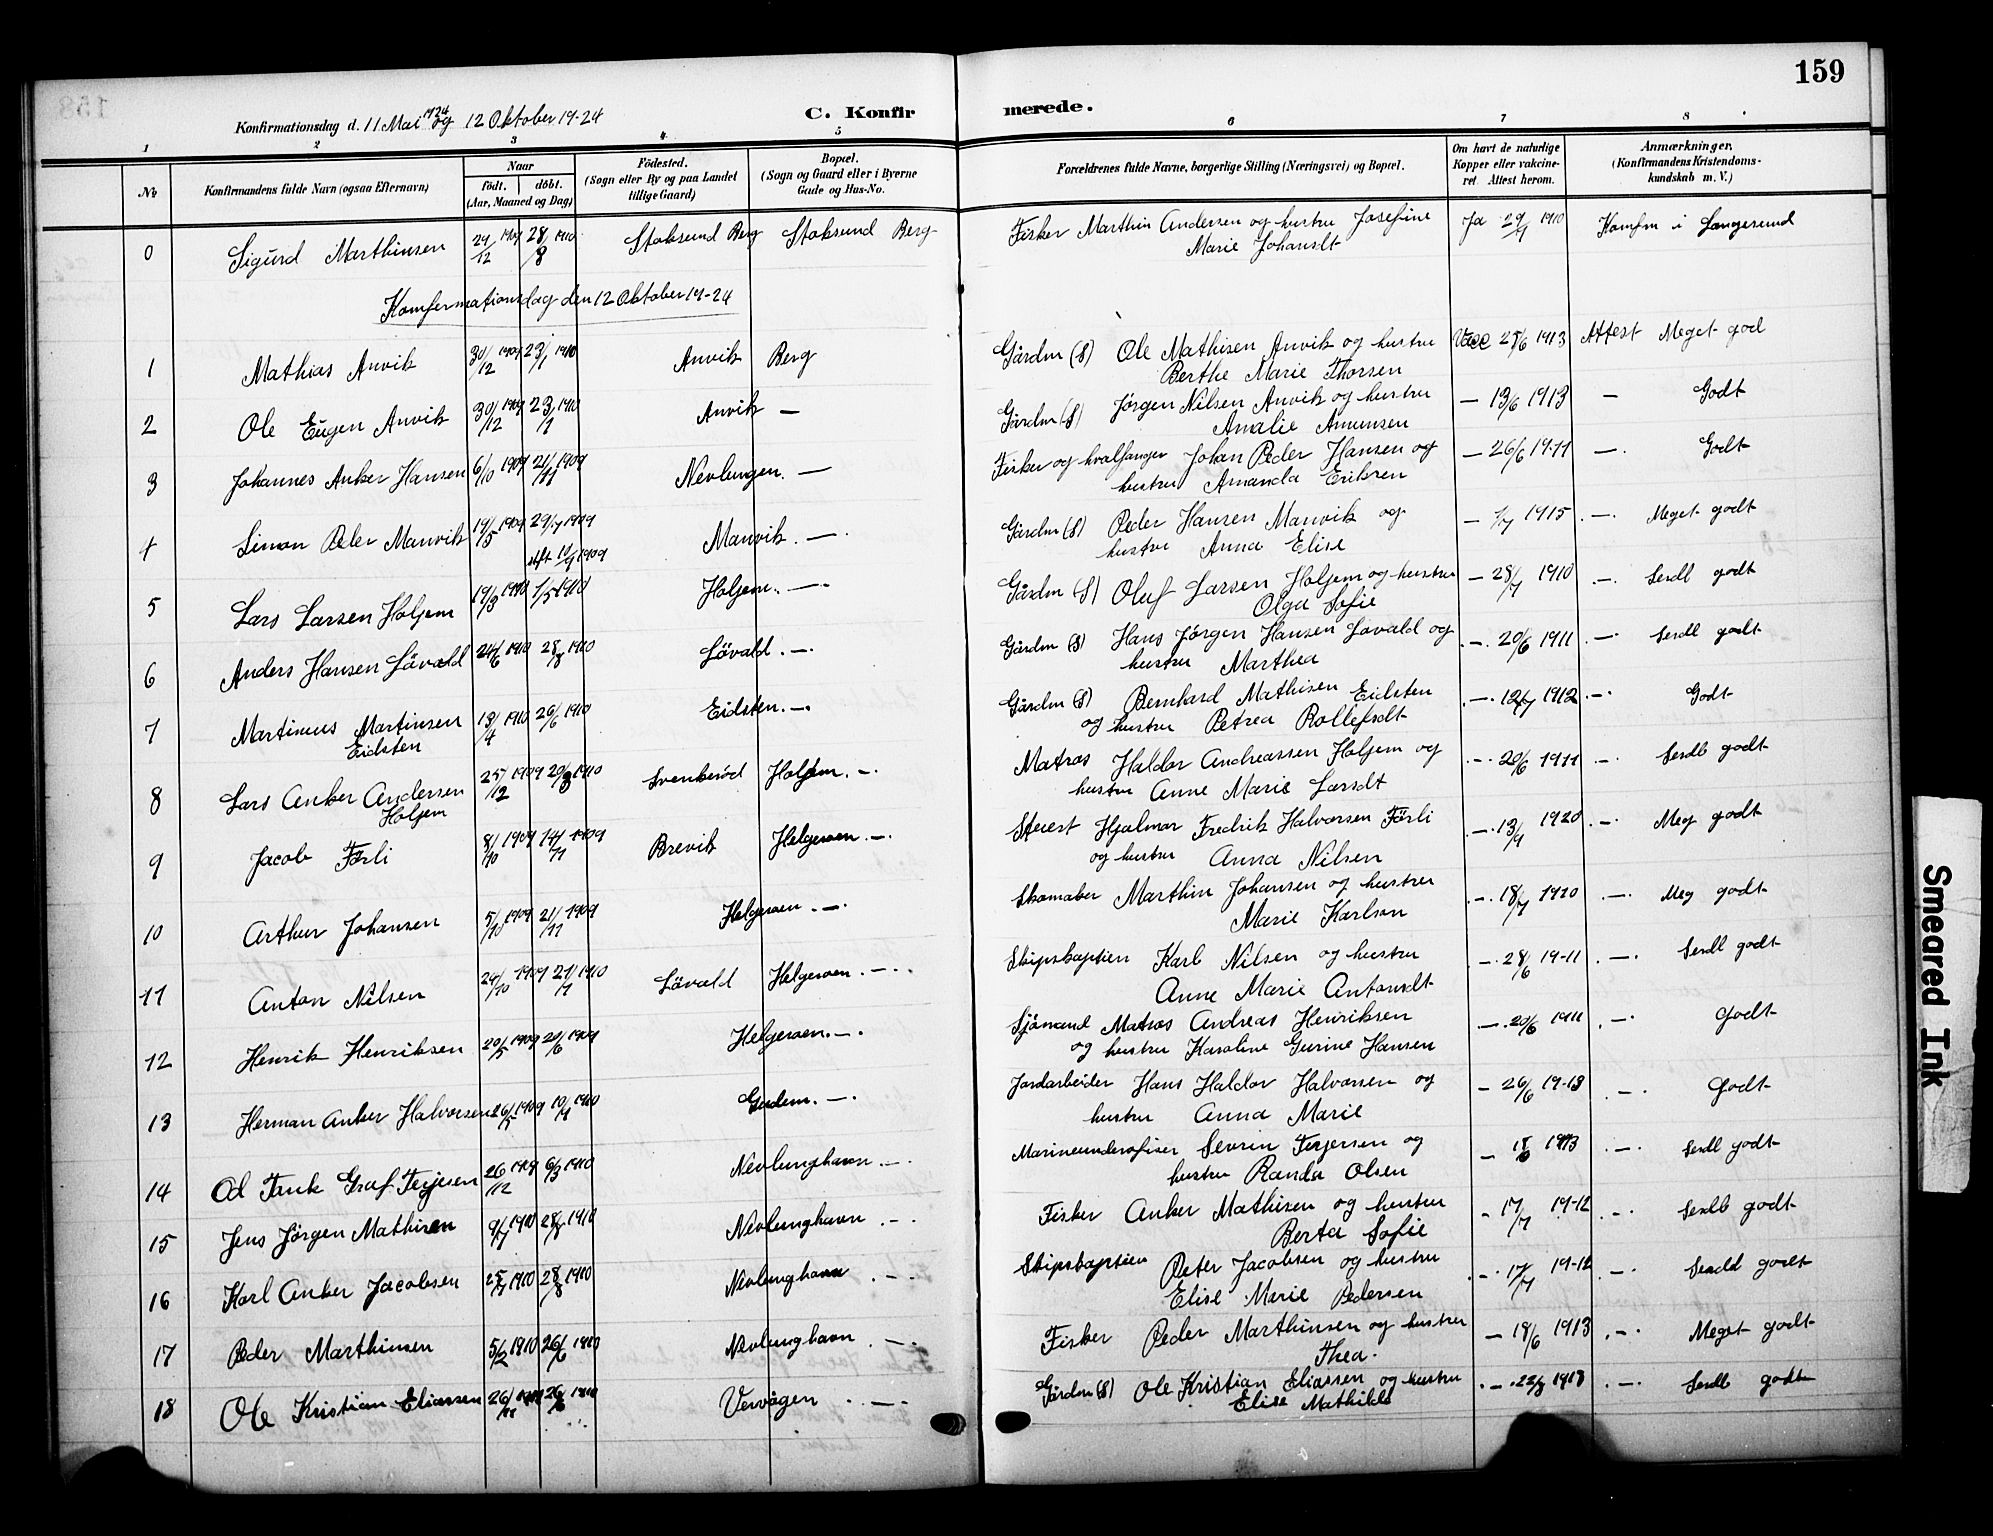 159
Konfirmationsdag d. 11 Mai 1924 og 12 Oktober 19-24 C. Konfirmerede.
1 2 3 4 5 6 7 8
No Konfirmandens fulde Navn (ogsaa Efternavn) Naar født. døbt. (Aar, Maaned og Dag) Födested. (Sogn eller By og paa Landet tillige Gaard) Bopæl. (Sogn og Gaard eller i Byerne Gade og Hus-No. Forældrenes fulde Navne, borgerlige Stilling (Næringsvei) og Bopæl. Om havt de naturlige Kopper eller vakcineret Attest herom. Anmærkninger. (Konfirmandens Kristendomskundskab m. V.)
0 Sigurd Marthinsen 29/12 1909 28/8 1910 Stoksund Berg Stoksund Berg Fisker Marthin Andersen og hustru Josefine Ja 29/9 1910 Komfm i Langesund
Marie Johansdt
Komfermationsdag den 12 Oktober 19-24
1 Mathias Anvik 30/12 1909 23/1 1910 Anvik Berg Gårdm (S) Ole Mathisen Anvik og hustru Vacc 28/6 1913 Attest Meget god
Berthe Marie Thorsen
2 Ole Eugen Anvik 30/12 1909 23/1 1910 Anvik — Gårdm (S) Jørgen Nilsen Anvik og hustru — 13/6 1913 — Godt
Amalie Amunsen
3 Johannes Anker Hansen 6/10 1909 21/11 1909 Nevlungen. — Fisker og hvalfanger Johan Peder Hansen og — 26/6 19-11 — Godt
hustru Amanda Eriksen
4 Simon Peder Manvik 19/5 1909 29/7 1909 Manvik. — Gårdm (S) Peder Hansen Manvik og — 1/7 1915 — Meget godt
stft 10/9 1909 hustru Anna Elise
5 Lars Larsen Holjem 19/3 1910 1/5 1910 Holjem. — Gårdm (S) Oluf Larsen Holjem og hustru — 28/7 1910 — Serdl godt
Olga Sofie
6 Anders Hansen Lövald 24/6 1910 28/8 1910 Lövald. — Gårdm (S) Hans Jørgen Hansen Lövald og — 20/6 1911 — Serdl godt
hustru Marthea
7 Martinus Martinsen 13/4 1910 26/6 1910 Eidsten. — Gårdm (S) Bernhard Mathisen Eidsten — 12/7 1912 — Godt
Eidsten og hustru Petrea Rollefsdt
8 Lars Anker Andersen 25/12 1909 20/3 1910 Svenkerød Holjem. — Matros Haldor Andreassen Holjem og — 20/6 1911 — Serdl godt
Holjem hustru Anne Marie Larsdt
9 Jacob Førli 8/10 1909 14/11 1909 Brevik Helgeroen. — Stuert Hjalmar Fredrik Halvorsen Förli — 13/9 1920 — Meg godt
og hustru Anna Nilsen
10 Arthur Johansen 5/10 1909 21/11 1909 Helgeroen. — Skomaker Marthin Johansen og hustru — 18/7 1910 — Meg godt
Marie Karlson
11 Anton Nilsen 24/10 1909 21/1 1910 Lövald Helgeroen. — Skipskaptien Karl Nilsen og hustru — 28/6 19-11 — Serdl godt
Anne Marie Antonsdt
12 Henrik Henriksen 20/5 1909 20/6 1909 Helgeroen. — Sjömand Matros Andreas Henriksen — 20/6 1911 — Godt
og hustru Karoline Gurine Hansen
13 Herman Anker Halvorsen 26/5 1909 10/4 1910 Gudem. — Jordarbeider Hans Haldor Halvorsen og — 26/6 19-13 — Godt
hustru Anna Marie
14 Od Tank Graf Terjesen 26/12 1909 6/3 1910 Nevlunghavn — Marineunderofiser Sevrin Terjersen og — 18/6 1913 — Serdl godt
hustru Randa Olsen
15 Jens Jørgen Mathisen 9/7 1910 28/8 1910 Nevlunghavn — Fisker Anker Mathisen og hustru — 17/7 19-12 — Serdl godt
Berta Sofie
16 Karl Anker Jacobsen 25/7 1910 28/8 1910 Nevlunghavn — Skipskaptien Peter Jacobsen og hustru — 17/7 19-12 — Serdl godt
Elise Marie Pedersen
17 Peder Marthinsen 5/2 1910 26/6 1910 Nevlunghavn — Fisker Peder Marthinsen og hustru — 18/6 1913 — Meget godt
Thea.
18 Ole Kristian Eliassen Vevågen — Gårdm (S) Ole Kristian Eliassen og hustru — 22/8 1913 — Serdl godt
Elise Mathilde
Smeared Ink